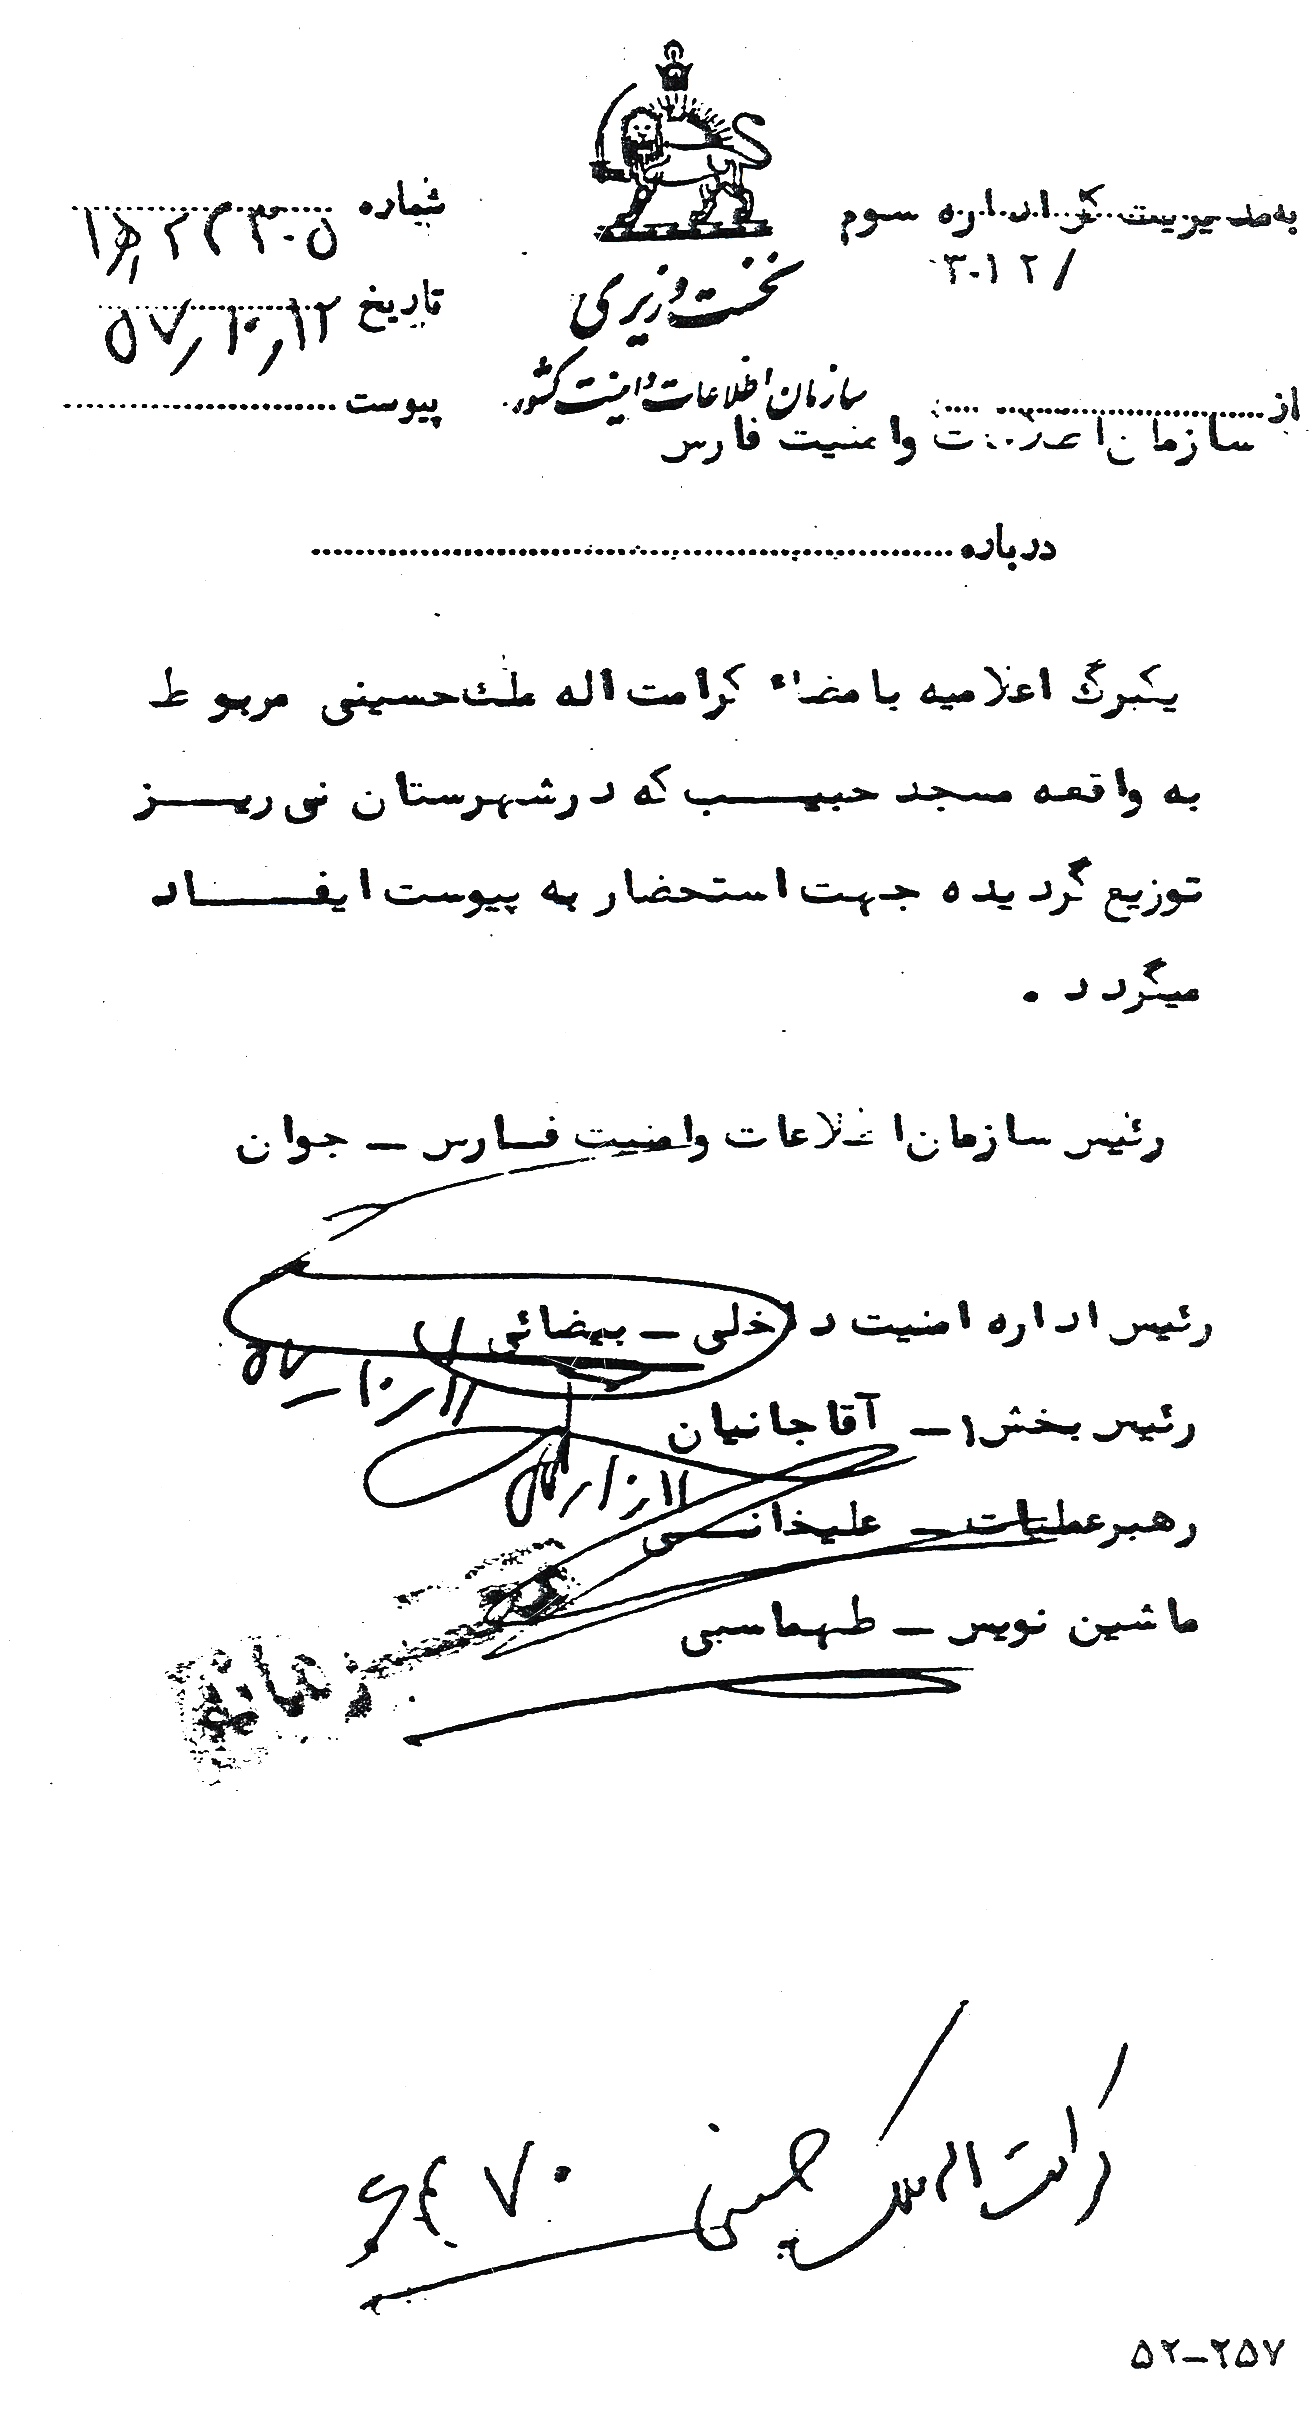 به مدیریت کل اداره سوم
۳۰۱۲ /
نخست وزیری
سازمان اطلاعات و امنیت کشور
شماره
تاریخ ۵۷٫۱۰٫۱۲
پیوست
از
سازمان اطلاعات وامنیت فارس
درباره
یکبرگ اعلامیه بامضاء کرامت اله ملک‌حسینی مربوط
به واقعه مسجد حبیب که درشهرستان نی ریز
توزیع گردیده جهت استحضار به پیوست ایفاد
میگردد .
رئیس سازمان اطلاعات وامنیت فارس – جوان
رئیس اداره امنیت داخلی – بیضائی
۱۱–۱۰–۵۷
رئیس بخش۱ – آقاجانیان
رهبرعملیات – علیخانی
ماشین نویس – طهماسبی
کرامت اله ملک حسینی
۵۲–۲۵۷